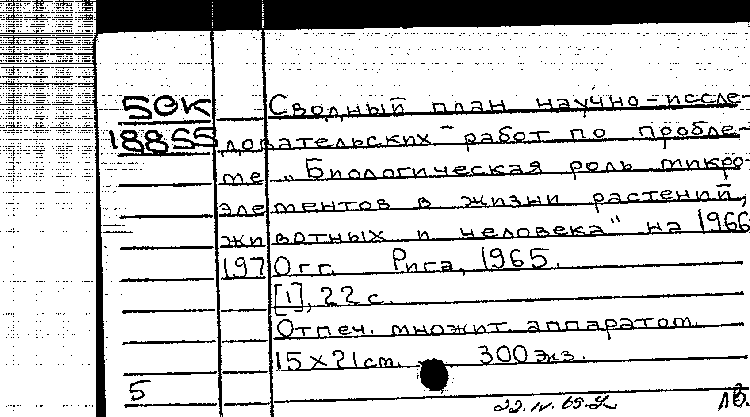 50К Сводный план научно-иссле-
18855 довательских работ по пробле-
ме „Биологическая роль микро-
элементов в жизни растений,
животных и человека" на 1966
1970 гг. Рига, 1965.
[1], 22 с.
Отпеч. множит. аппаратом.
15×21 см. 300 экз.
5